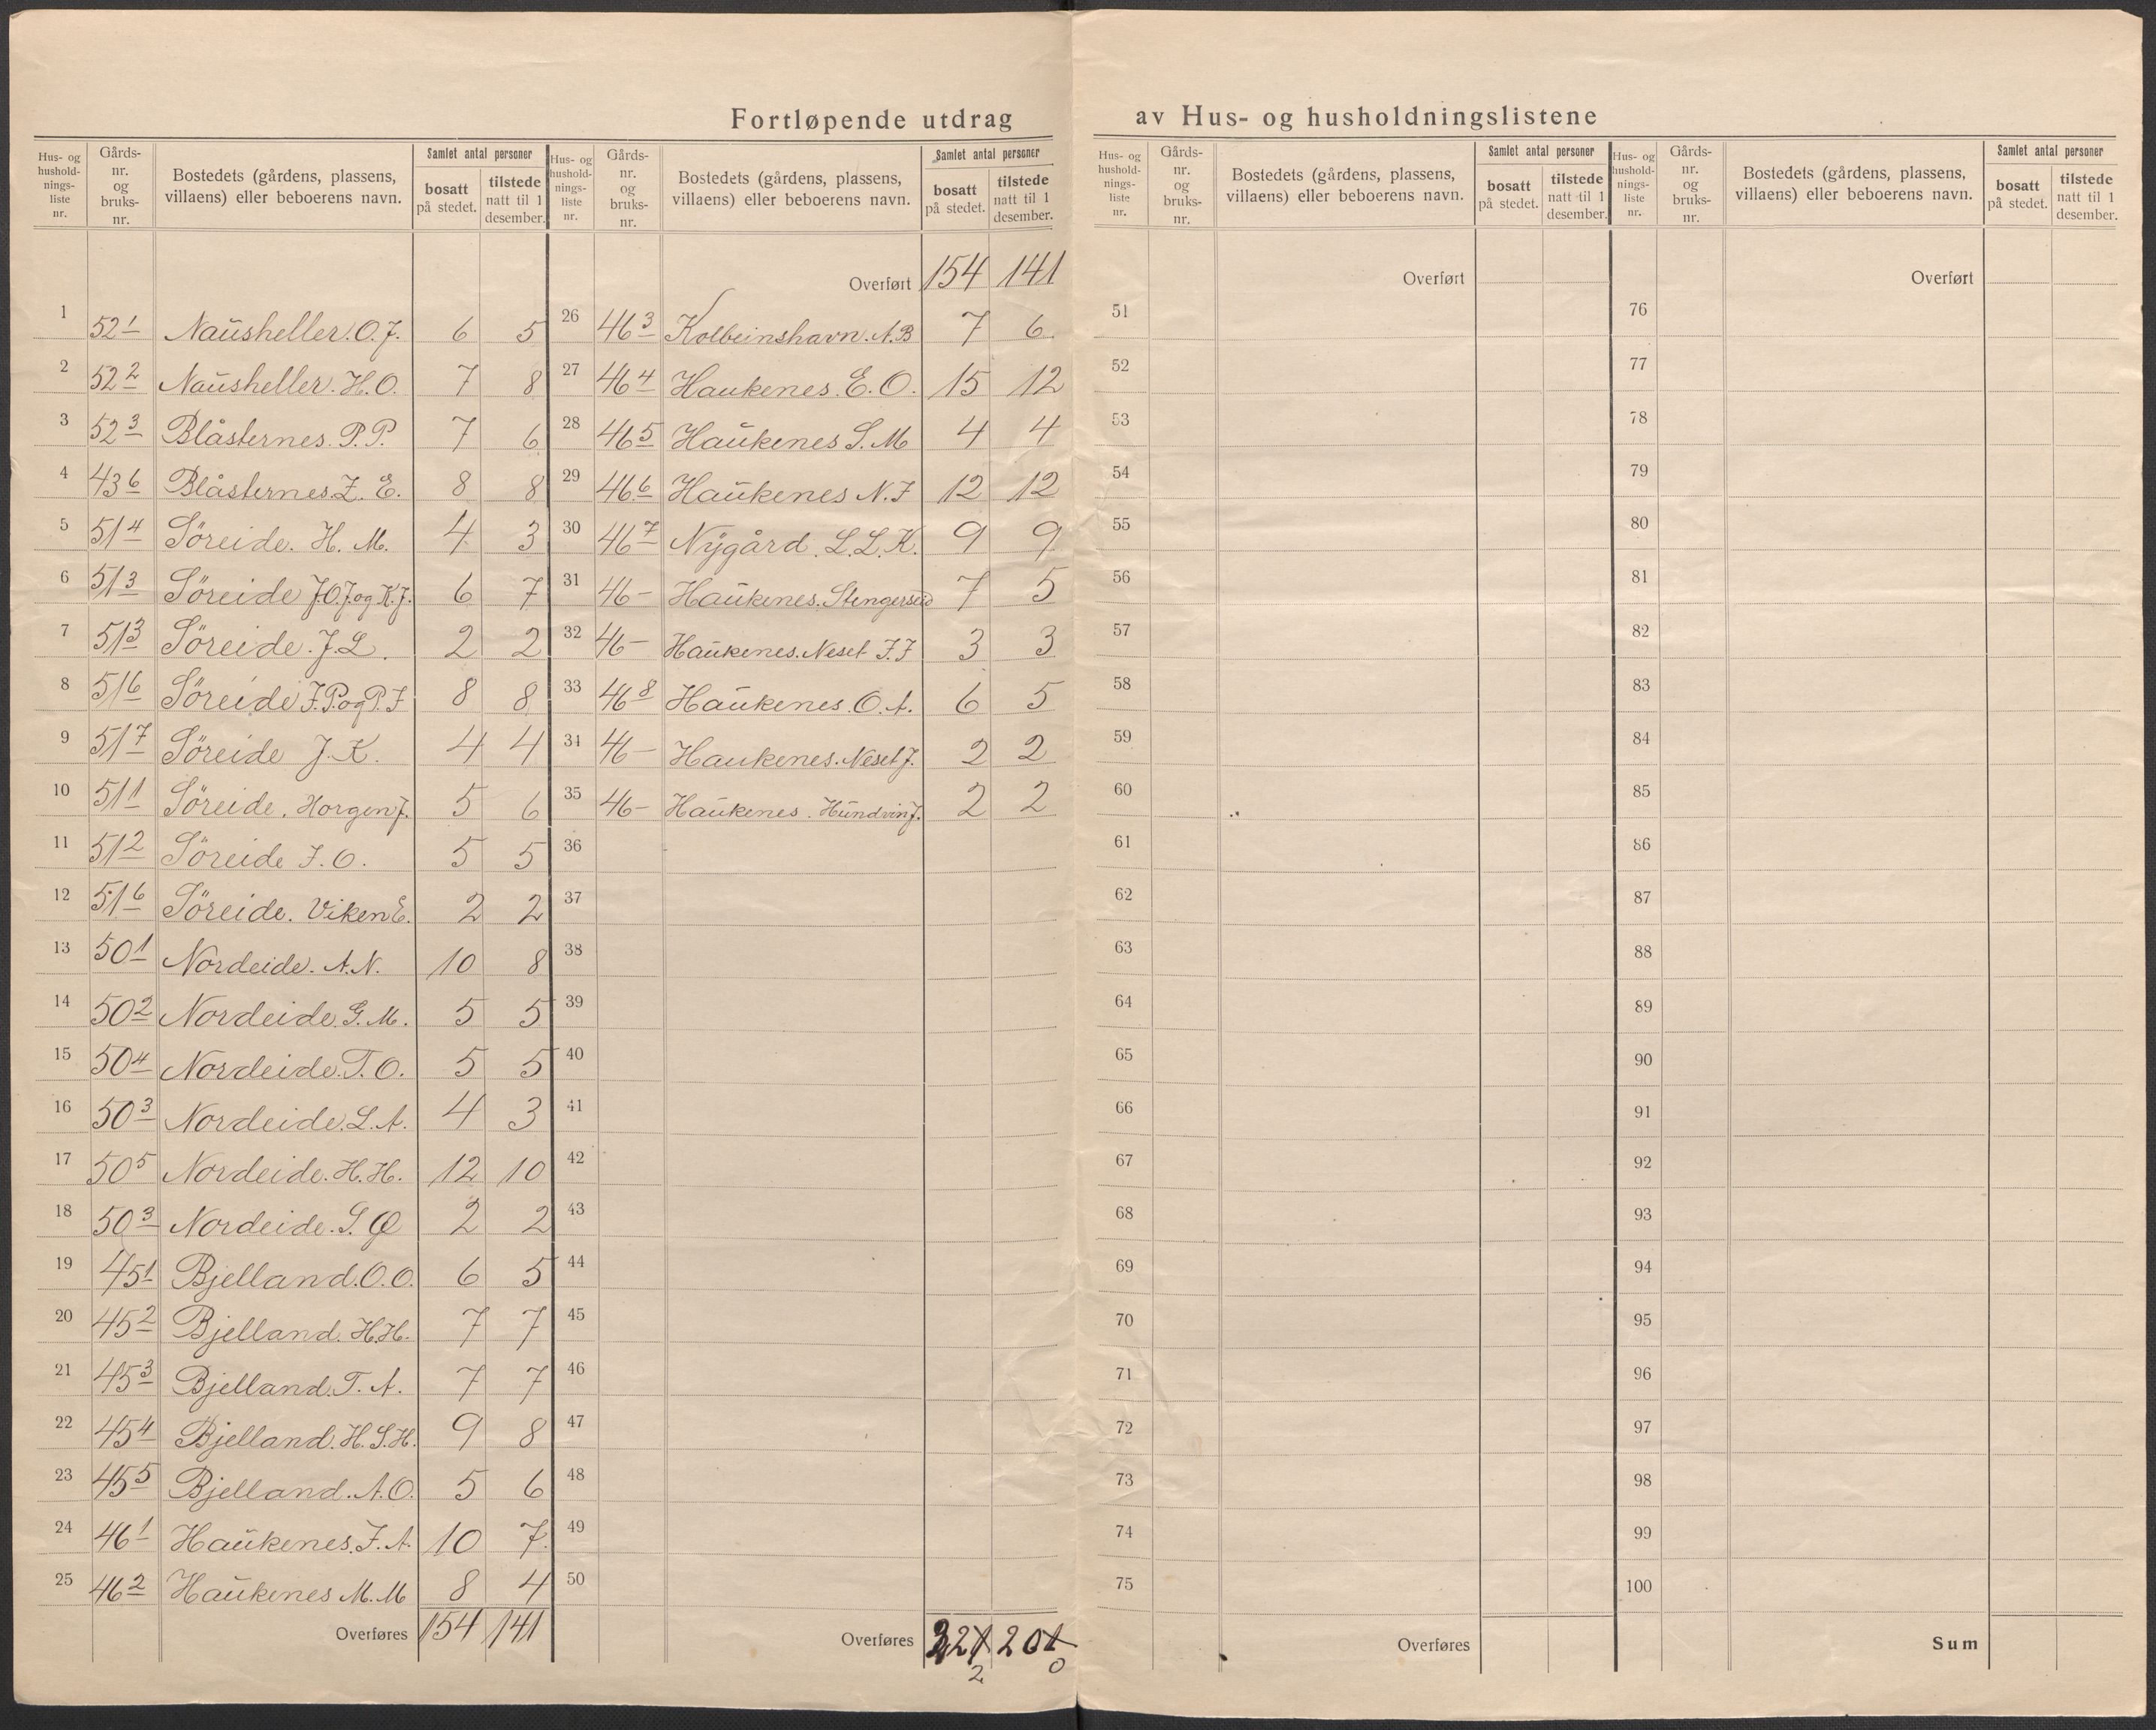 Fortløpende utdrag av Hus- og husholdningslistene
Hus- og hushold-nings-liste nr. Gårds-nr. og bruks-nr. Bostedets (gårdens, plassens, villaens) eller beboerens navn. Samlet antal personer bosatt på stedet. tilstede natt til 1 desember.
1 52 1 Naŭsheller. O. J. 6 5
2 52 2 Naŭsheller. H. O. 7 8
3 52 3 Blåsternes. P. P. 7 6
4 43 6 Blåsternes. Z. E. 8 8
5 51 4 Söreide. H. M. 4 3
6 51 3 Söreide J.O.J. og K.J. 6 7
7 51 3 Söreide. J. L. 2 2
8 51 6 Söreide J.P. og P. J 8 8
9 51 7 Söreide J. K. 4 4
10 51 1 Söreide. Horgen J. 5 6
11 51 2 Söreide J. O. 5 5
12 51 6 Söreide. Viken E. 2 2
13 50 1 Nordeide. A. N. 10 8
14 50 2 Nordeide. G. M. 5 5
15 50 4 Nordeide. T. O. 5 5
16 50 3 Nordeide. L. A. 4 3
17 50 5 Nordeide. H. H. 12 10
18 50 3 Nordeide. S. Ø 2 2
19 45 1 Bjelland. O. O. 6 5
20 45 2 Bjelland. H. H. 7 7
21 45 3 Bjelland. T. A. 7 7
22 45 4 Bjelland. H. S. H. 9 8
23 45 5 Bjelland. A. O. 5 6
24 46 1 Haŭkenes. J. A. 10 7
25 46 2 Haŭkenes M. M 8 4
Overføres 154 141
Hus- og hushold-nings-liste nr. Gårds-nr. og bruks-nr. Bostedets (gårdens, plassens, villaens) eller beboerens navn. Samlet antal personer bosatt på stedet. tilstede natt til 1 desember.
Overført 154 141
26 46 3 Kolbeinshavn. A. B 7 6
27 46 4 Haukenes. E. O. 15 12
28 46 5 Haŭkenes S. M 4 4
29 46 6 Haŭkenes N. J 12 12
30 46 7 Nÿgård. L. L. K. 9 9
31 46 – Haŭkenes. 7 5
32 46 – Haŭkenes. Neset J. J 3 3
33 46 8 Haŭkenes. O. A. 6 5
34 46 – Haukenes. Neset J. 2 2
35 46 – Haŭkenes. Hŭndvin J. 2 2
36
37
38
39
40
41
42
43
44
45
46
47
48
49
50
Overføres 221 201
2 0
Hus- og hushold-nings-liste nr. Gårds-nr. og bruks-nr. Bostedets (gårdens, plassens, villaens) eller beboerens navn. Samlet antal personer bosatt på stedet. tilstede natt til 1 desember.
Overført
51
52
53
54
55
56
57
58
59
60
61
62
63
64
65
66
67
68
69
70
71
72
73
74
75
Overføres
Hus- og hushold-nings-liste nr. Gårds-nr. og bruks-nr. Bostedets (gårdens, plassens, villaens) eller beboerens navn. Samlet antal personer bosatt på stedet. tilstede natt til 1 desember.
Overført
76
77
78
79
80
81
82
83
84
85
86
87
88
89
90
91
92
93
94
95
96
97
98
99
100
Sum